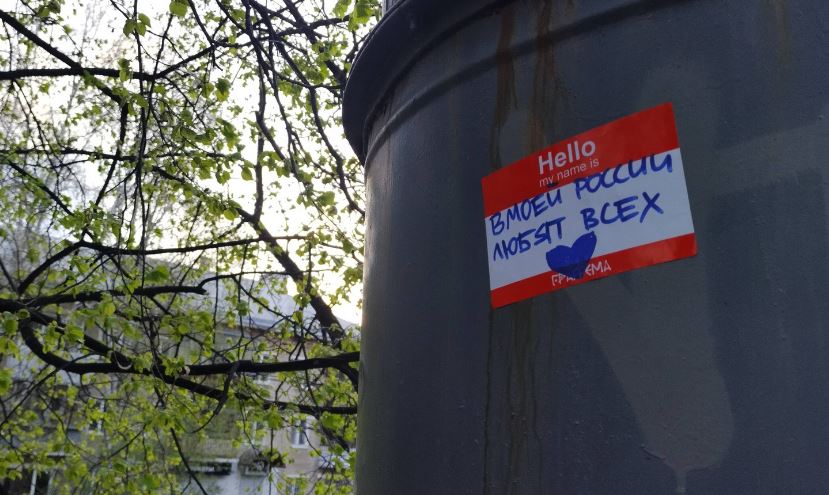 Hello
my name is
В МОЕЙ РОССИИ
ЛЮБЯТ ВСЕХ